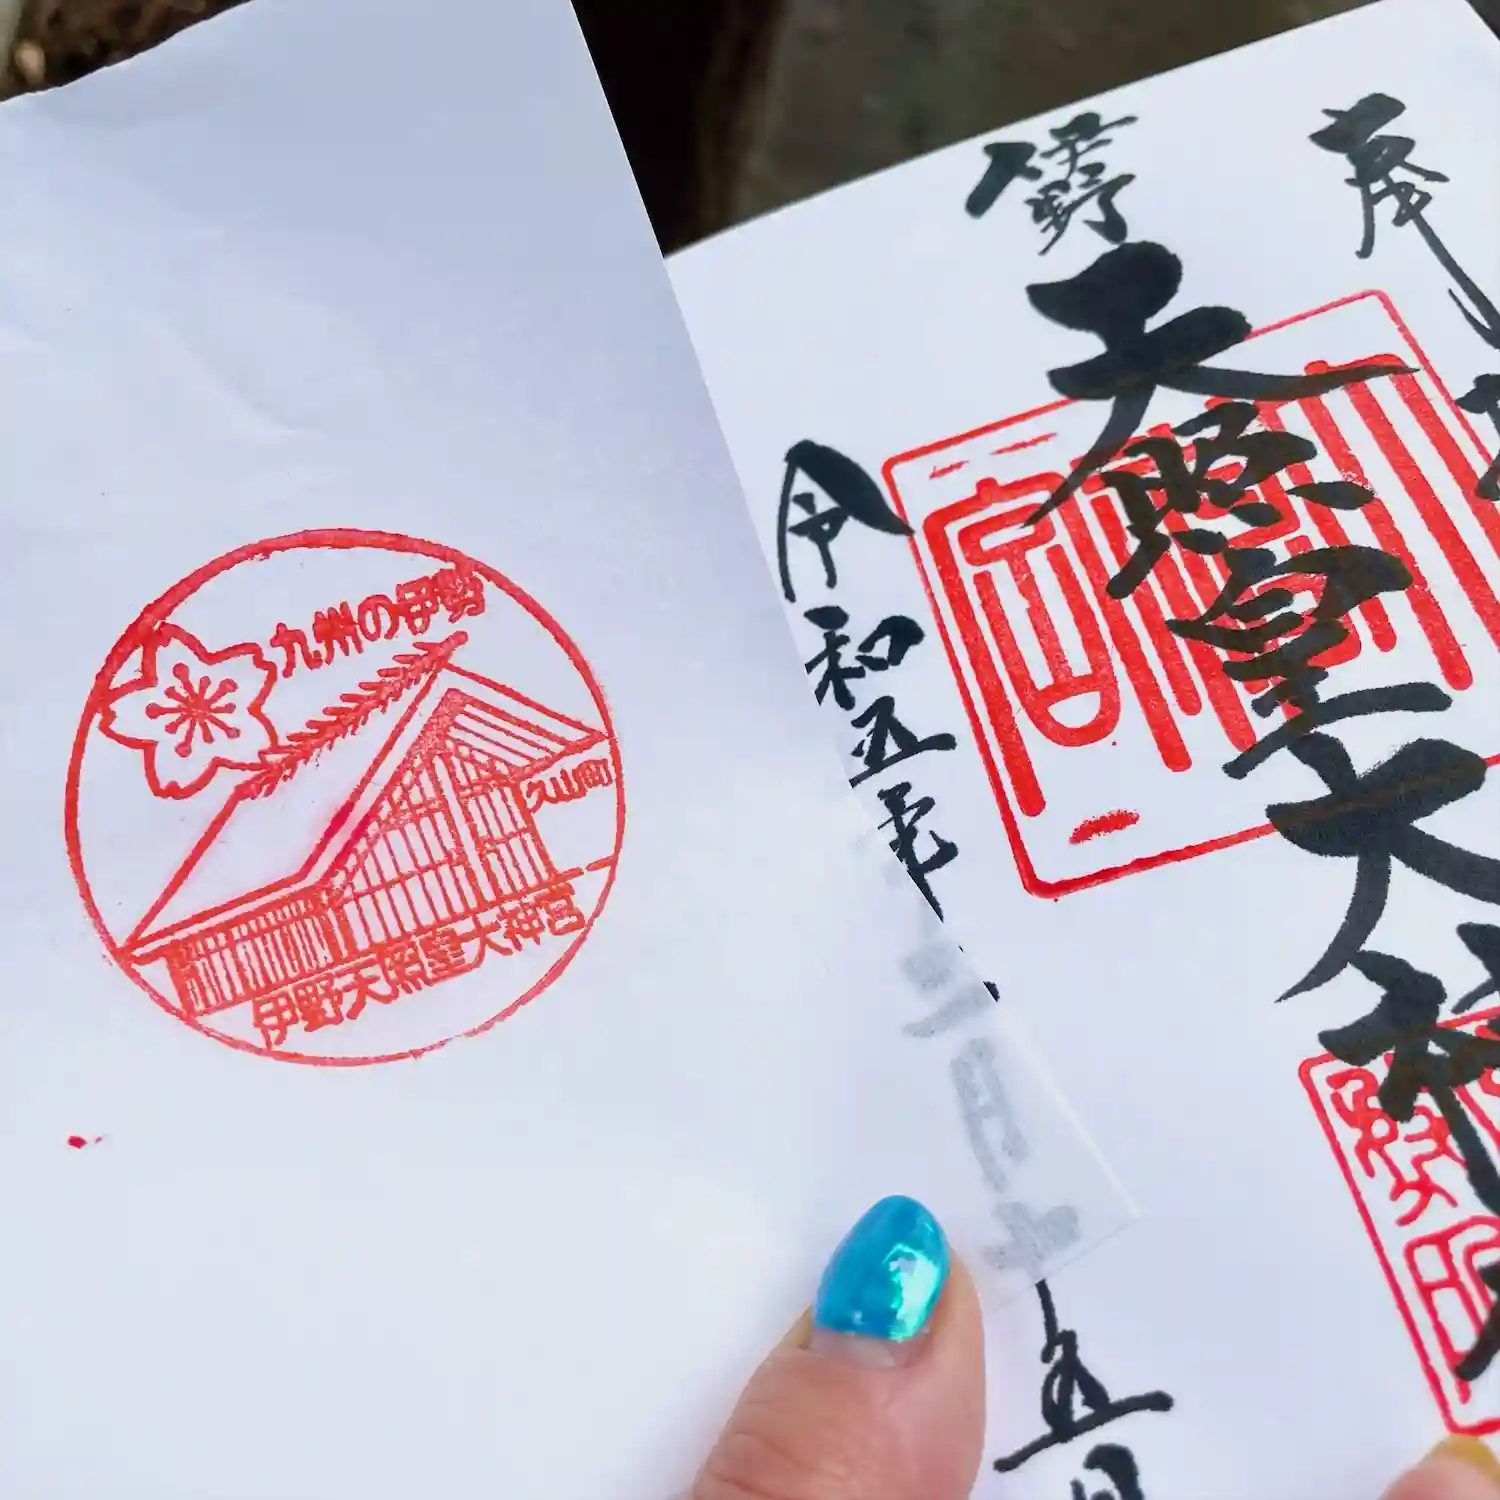 九州の伊勢
久山町
伊野天照皇大神宮
奉拝
伊野
天照皇大神
令和五年二月十五日